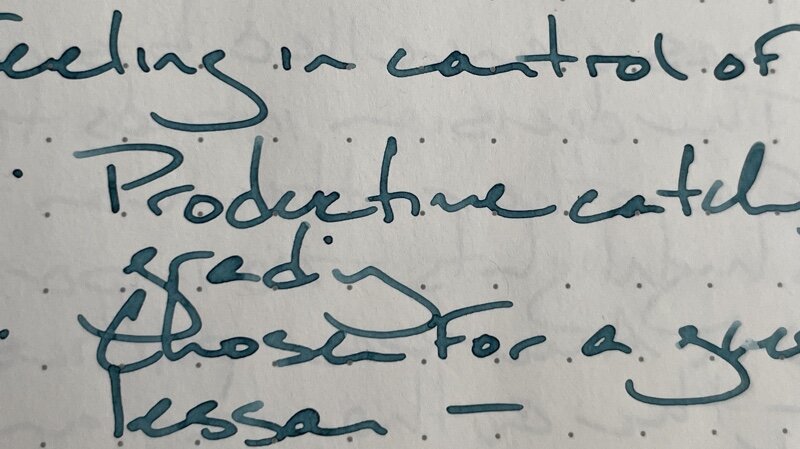 Feeling in control of
• Productive catch
grading
• Chosen for a gue
lesson —